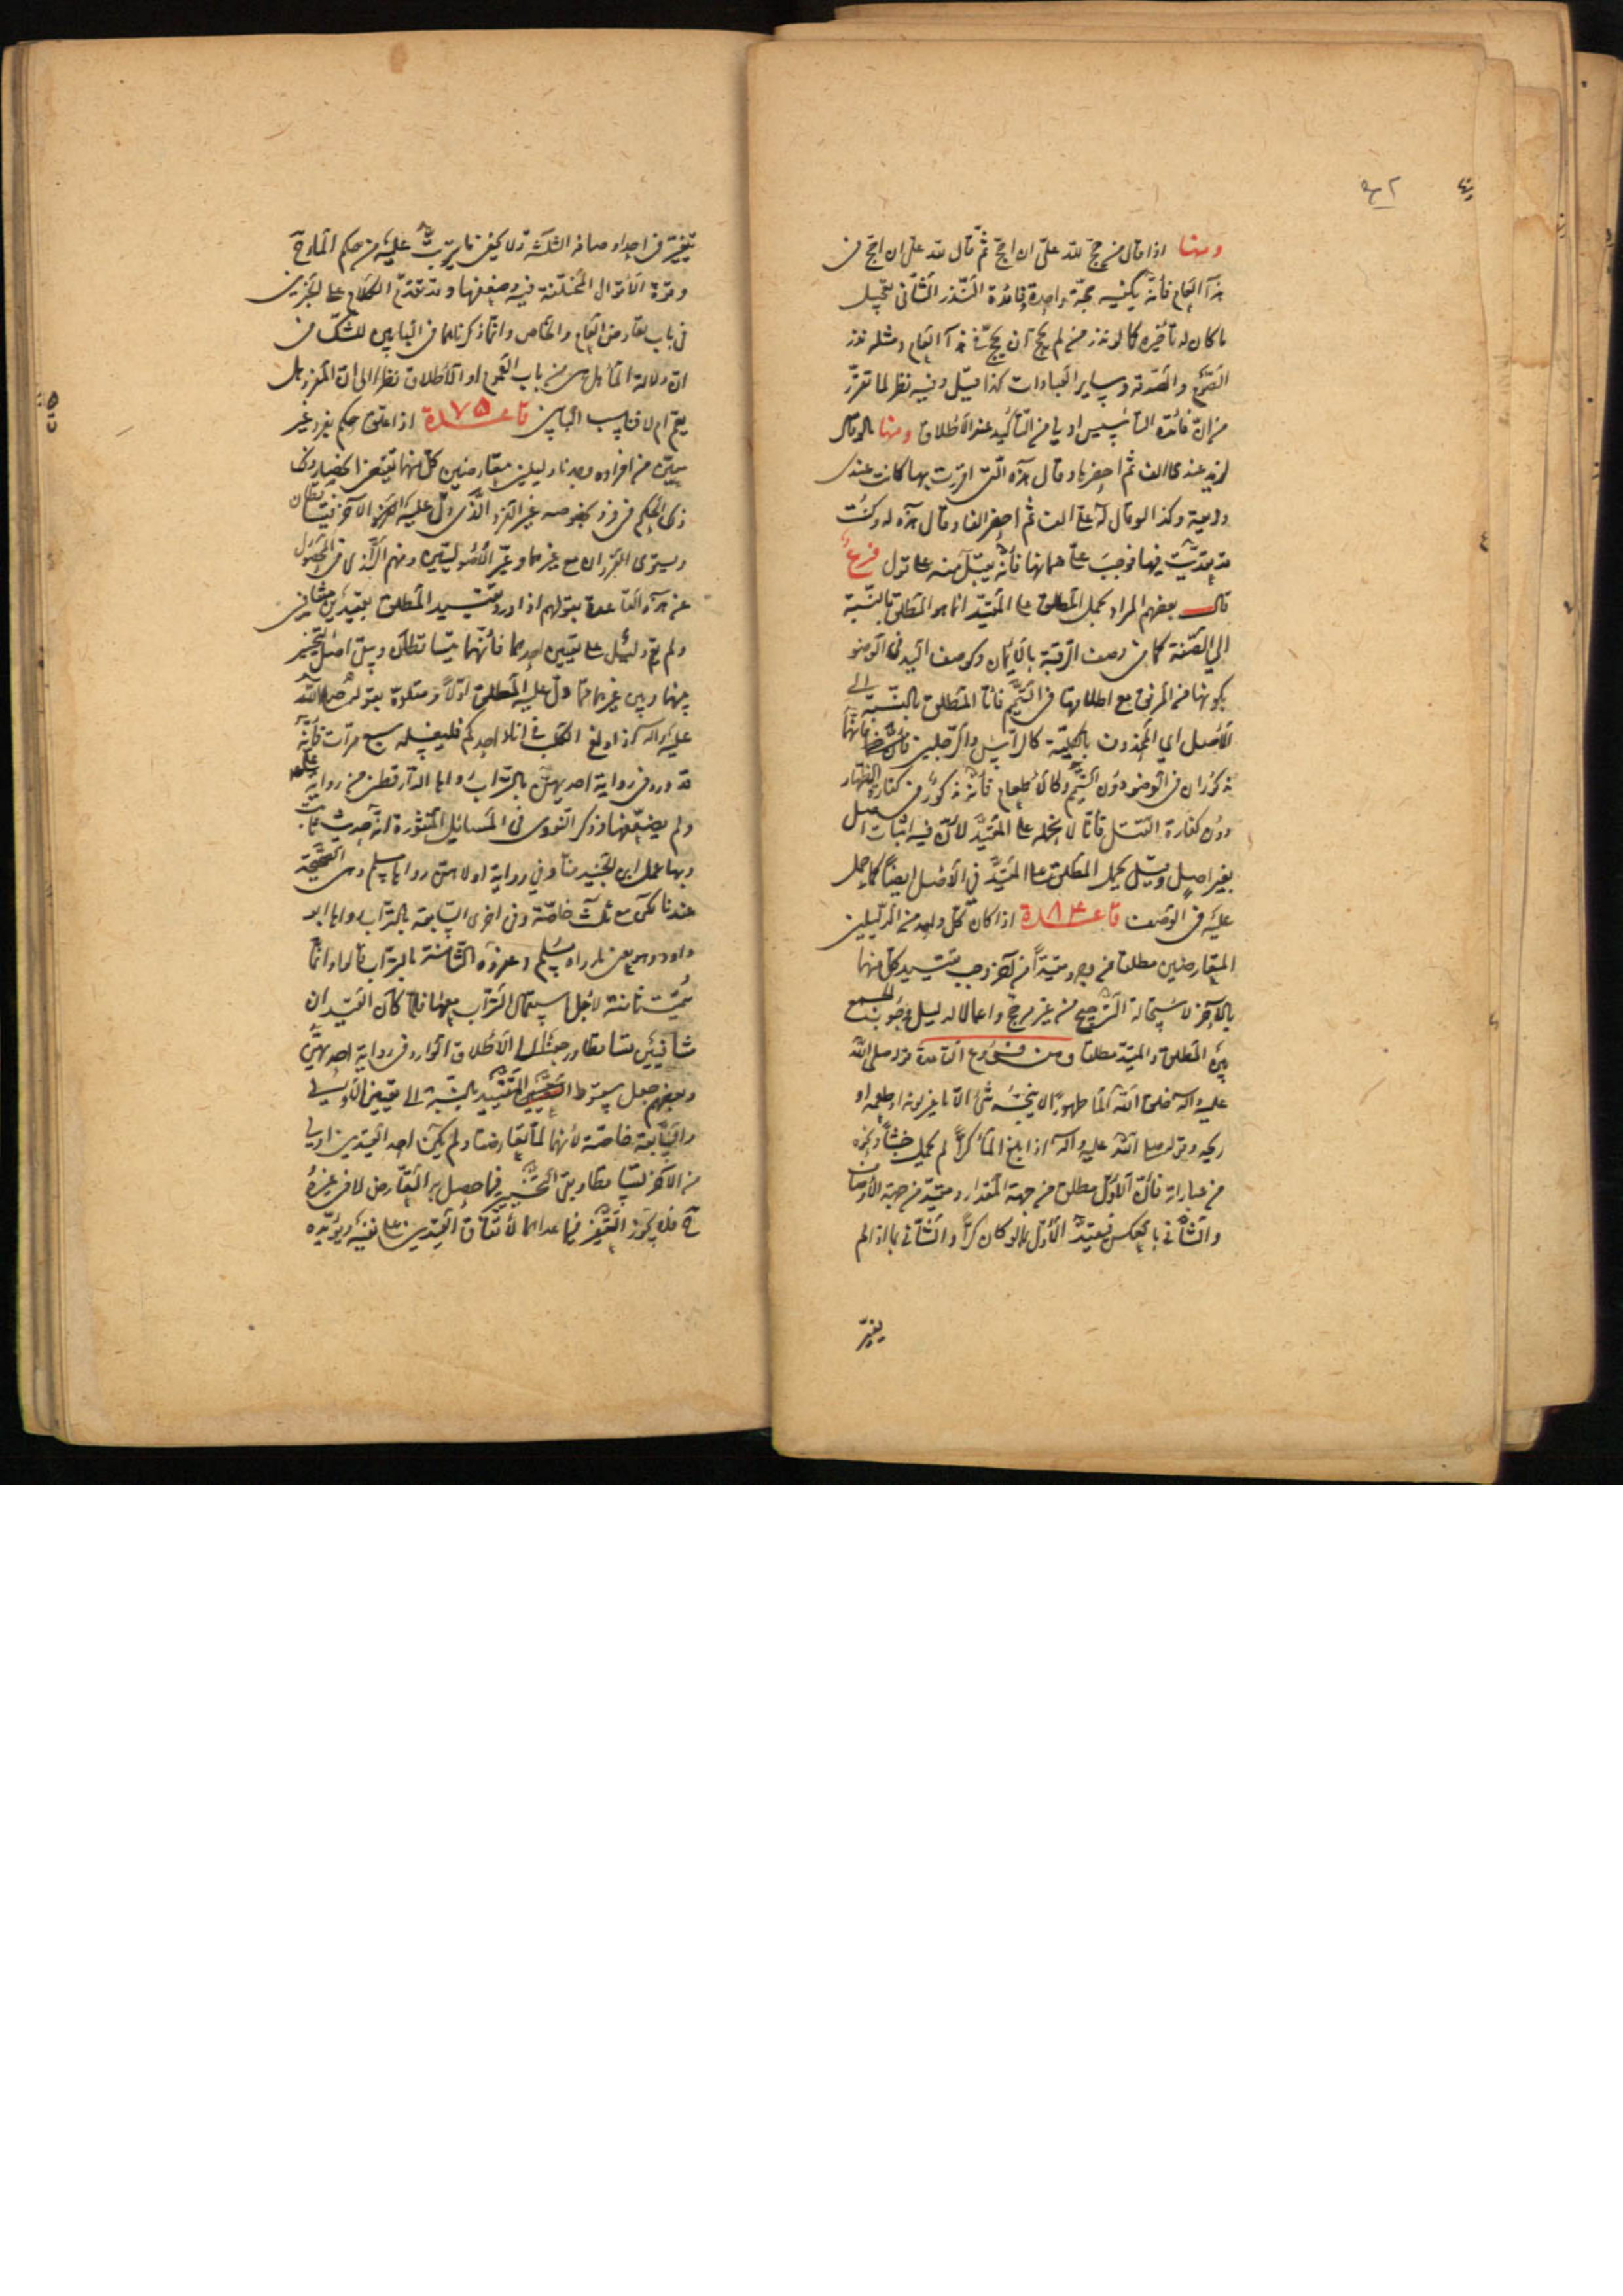 ومنها اذا قال من حج لله علىّ ان احجّ ثمّ قال لله علىّ ان احجّ فى
هذا العام فانّه يكفيه حجّة واحدة وفائدة النّذر الثّانى تعجيل
ما كان له تأخيره كما لو نذر من لم يحج ان يحجّ فى هذا العام ومثله نذر
الصّوم والصّدقة وساير العبادات كذا قيل وفيه نظر لما تقرّر
من انّ فائدة التأسيس اولى من التّأكيد عند الاطلاق ومنها ما لو قال
لزيد عندى الف ثم احضرها وقال هذه الّتى اقررت بها كانت عندى
وديعة وكذا لو قال له علىّ الف ثم احضر الفا وقال هذه له وكنت
قد تعدّيت فيها فوجب علىّ ضمانها فانّه يقبل منه على قول فرع
قال بعضهم المراد بحمل المطلق على المقيّد انما هو المطلق بالنّسبة
الى الصّفة كما فى وصف الرّقبة بالايمان وكوصف اليد فى الوضو
بكونها من المرفق مع اطلاقها فى التّيمّم فامّا المطلق بالنّسبة الى
الاصل اى المحذوف بالكلّيّة كالرّأس والرّجلين فانّهما
مذكوران فى الوضو دون التّيمّم وكالاطعام فانّه مذكور فى كفّارة الظهار
دون كفارة القتل فانّا لا نحمله على المقيّد لانّ فيه اثبات اصل
بغير اصل وقيل يحمل المطلق على المقيّد فى الاصل ايضاً كما حمل
عليه فى الوصف قاعدة اذا كان كلّ واحد من الدّليلين
المتعارضين مطلقا من وجه ومقيّداً من آخر وجب تقييد كلّ منهما
بالآخر لاستحالة التّرجيح من غير مرجّح واعمالا لدليل وجوب الجمع
بين المطلق والمقيّد مطلقا ومن فروع القاعدة قوله صلى الله
عليه واله خلق الله الماء طهوراً لا ينجّسه شئ الّا ما غيّر لونه او طعمه او
ريحه وقوله صلى الله عليه واله اذا بلغ الماء كرّاً لم يحمل خبثاً ونحوه
من عباراته فانّ الاوّل مطلق من جهة المقدار ومقيّد من جهة الاوصاف
والثّانى بالعكس فيقيّد الاوّل بما لو كان كرّاً والثّانى بما اذا لم
يتغيّر
يتغيّر فى احد اوصافه الثلاثة ولا يخفى ما يترتّب عليه من حكم
وقوّة الاقوال المختلفة فيه وضعفها وقد تقدّم الكلام على الخبرين
فى باب تعارض العام والخاص وانّما ذكرناهما فى البابين للشكّ فى
انّ دلالة الماء هل هى من باب العموم او الاطلاق نظرا الى انّ المفرد هل
يعمّ ام لا فناسب البابين قاعدة ٧٥ اذا علّق حكم بفرد غير
معيّن من افراده ووجدنا دليلين متعارضين كلّ منهما يقتضى انحصار
ذلك الحكم فى فرد بخصوصه غير الفرد الّذى دلّ عليه الآخر فيتساقطان
ويستوى الفردان مع غيرهما وعبّر الاصوليّين ومنهم الرّازى فى المحصول
عن هذه القاعدة بقولهم اذا ورد تقييد المطلق بقيدين متنافيين
ولم يقم دليل على تعيين احدهما فانّهما يتساقطان ويبقى اصل التّخيير
بينهما وبين غيرهما ممّا دلّ عليه المطلق اوّلاً ومثّلوه بقوله صلى الله
عليه واله اذا ولغ الكلب فى اناء احدكم فليغسله سبع مرّات فانّه
قد ورد فى رواية احديهنّ بالتراب رواها الدّارقطنى من رواية على
ولم يضعّفها وذكر النّووى فى المسائل المنثورة انّه حديث ثابت
وبها عمل ابن الجنيد منّا وفى رواية اولاهنّ رواها مسلم وهى الصّحيحة
عندنا لكن مع ثلث خاصّة وفى اخرى السّابعة بالتّراب رواها ابو
داود وهو معنى ما رواه مسلم وعفّروه الثّامنة بالتراب قالوا وانّما
سمّيت ثامنة لاجل استعمال التراب معها فلمّا كان القيدان
متنافيين تساقطا ورجعنا الى الاطلاق الوارد فى رواية احديهنّ
وبعضهم جعل سقوط التقييد بالنّسبة الى تعيين الاولى
والسّابعة خاصّة لانّهما لمّا تعارضتا ولم يكن احد القيدين اولى
من الآخر تساقطا وبقى التّخيير فيما حصل به التّعارض لا فى غيره
فلا يجوز التّعفير فيما عداهما لاتّفاق القيدين على نفيه ويؤيّده